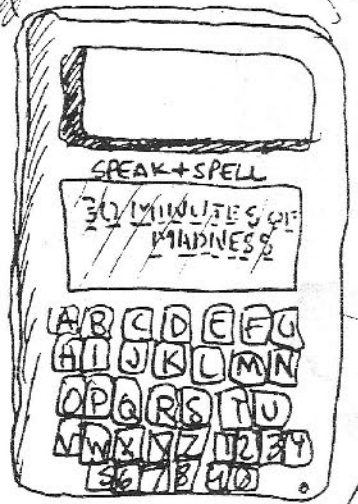 SPEAK+SPELL
30 MINUTES OF
MADNESS
A B C D E F G
H I J K L M N
O P Q R S T U
V W X Y Z 1 2 3 4
5 6 7 8 9 0